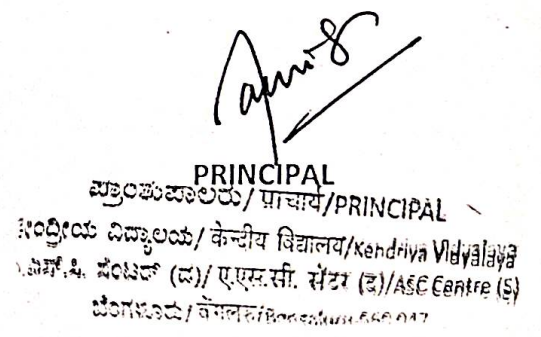 PRINCIPAL
ಪ್ರಾಂಶುಪಾಲರು/ प्राचार्य/PRINCIPAL
ಕೇಂದ್ರೀಯ ವಿದ್ಯಾಲಯ/ केन्द्रीय विद्यालय/Kendriya Vidyalaya
ಎಸ್.ಸಿ. ಸೆಂಟರ್ (ದ)/ ए.एस.सी. सेंटर (द)/ASC Centre (S)
ಬೆಂಗಳೂರು/ बेंगलूरु/